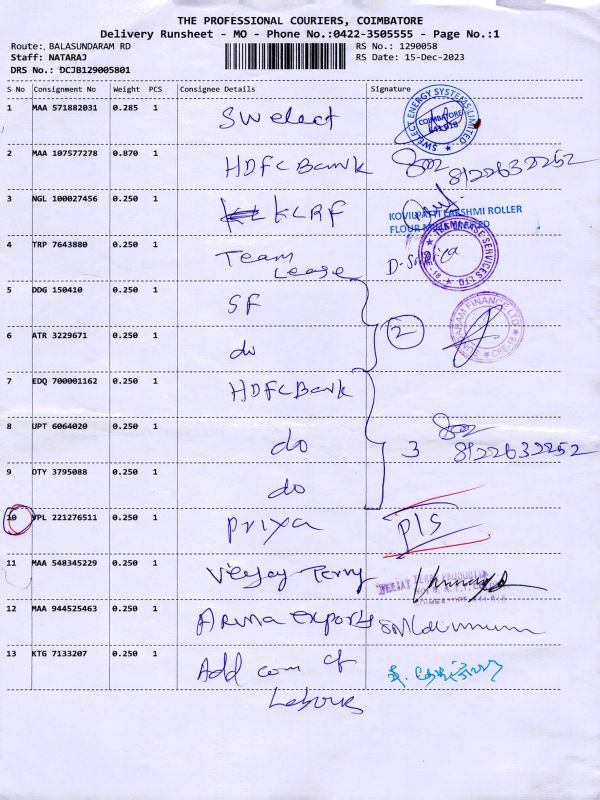 THE PROFESSIONAL COURIERS, COIMBATORE
Delivery Runsheet - MO - Phone No.:0422-3505555 - Page No.:1
Route:, BALASUNDARAM RD
RS No.: 1290058
Staff: NATARAJ
RS Date: 15-Dec-2023
DRS No.: DCJB129005801
S No Consignment No Weight PCS Consignee Details Signature
1 MAA 571882031 0.285 1 SW elect
SWELECT ENERGY SYSTEMS LIMITED COIMBATORE 641 018
2 MAA 107577278 0.870 1 HDFC Bank 8122632252
3 NGL 100027456 0.250 1 KLRF
KOVILPATTI LAKSHMI ROLLER
FLOUR
4 TRP 7643880 0.250 1 Team
Lease
TEAMLEASE SERVICES LTD
5 DDG 150410 0.250 1 SF
2
6 ATR 3229671 0.250 1 do
FINANCE LTD CBE-18
7 EDQ 700001162 0.250 1 HDFC Bank
8 UPT 6064020 0.250 1 do 3 8122632252
9 OTY 3795088 0.250 1 do
10 VPL 221276511 0.250 1 Priya P/S
11 MAA 548345229 0.250 1 Veejay Terry
VEEJAY TERRY PRODUCTS
12 MAA 944525463 0.250 1 Aruna Exports
13 KTG 7133207 0.250 1 Add com of
Labour